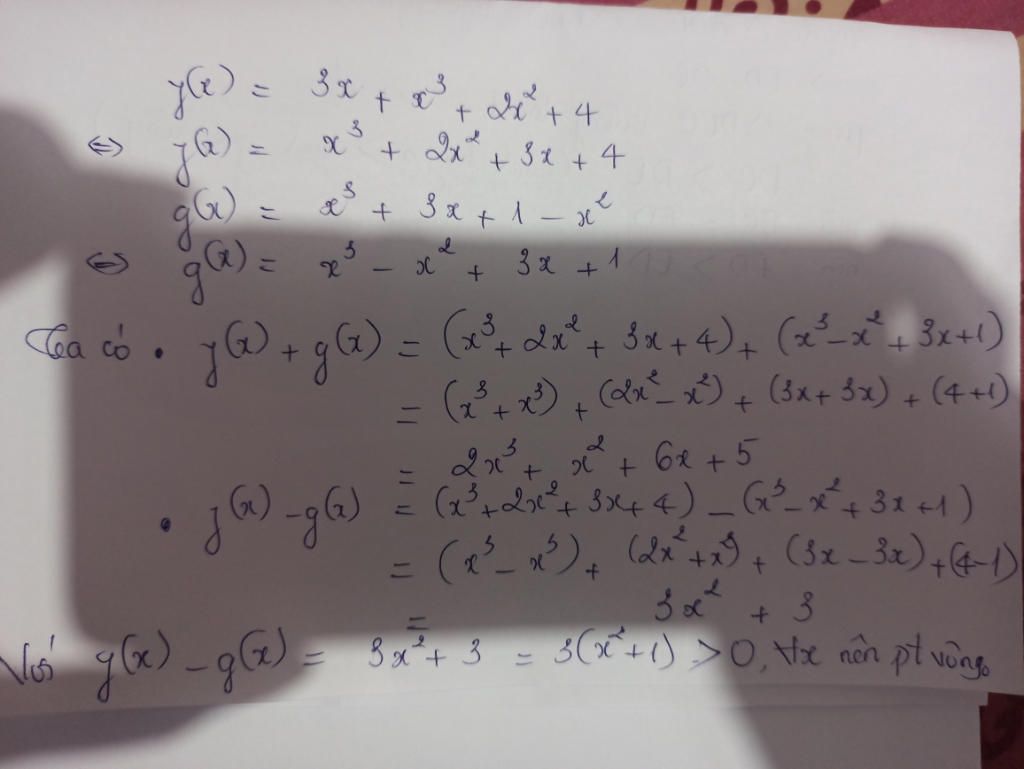 f(x) = 3x + x³ + 2x² + 4
⇔ f(x) = x³ + 2x² + 3x + 4
g(x) = x³ + 3x + 1 - x²
⇔ g(x) = x³ - x² + 3x + 1
Ta có • f(x) + g(x) = (x³ + 2x² + 3x + 4) + (x³ - x² + 3x + 1)
= (x³ + x³) + (2x² - x²) + (3x + 3x) + (4 + 1)
= 2x³ + x² + 6x + 5
• f(x) - g(x) = (x³ + 2x² + 3x + 4) - (x³ - x² + 3x + 1)
= (x³ - x³) + (2x² + x²) + (3x - 3x) + (4 - 1)
= 3x² + 3
Với f(x) - g(x) = 3x² + 3 = 3(x² + 1) > 0, ∀x nên pt vô ng.